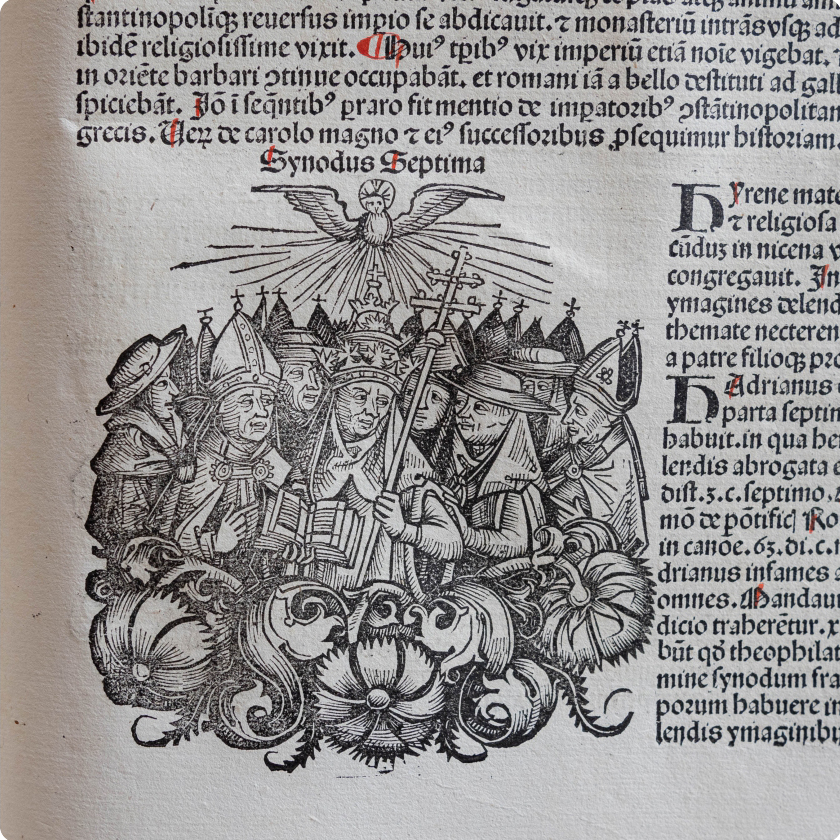 stantinopolīqȝ reuersus impio se abdicauit. ⁊ monasteriū intrās vsqȝ ad
ibidē religiosissime vixit. Huiꝰ tp̄ibꝰ vix imperiū etiā noīe vigebat.
in oriēte barbari ꝯtinue occupabāt. et romani iā a bello destituti ad gall
spiciebāt. Jō ī seq̄ntibꝰ ꝑraro fit mentio de imꝑatoribꝰ ꝯstātinopolitan
grecis. Uerȝ de carolo magno ⁊ eiꝰ successoribus ꝓsequimur historiam.
Synodus Septima
HYrene mate
⁊ religiosa
cūduȝ in nicena v
congregauit. Jn
ymagines delend
themate necteren
a patre filioqȝ pro
HAdrianus
parta septim
habuit. in qua he
lendis abrogata
dist.3.c.septimo.
mō de pōtific̄ Ro
in canōe.63.di.c.
drianus infames
omnes. Mandau
dicio traherētur.
būt qđ theophilat
mine synodum fra
porum habuere in
lendis ymaginibꝰ